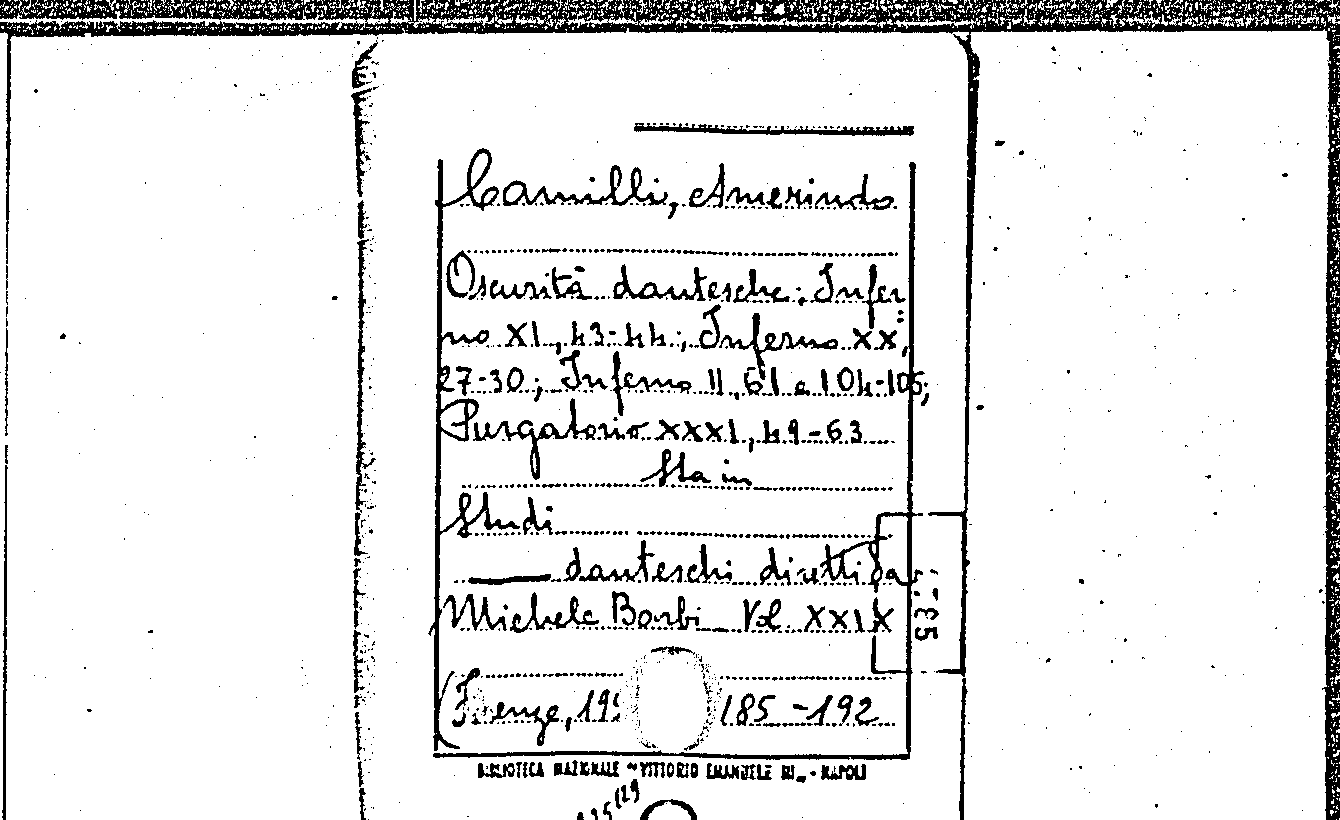 Camilli, Amerindo
Oscurità dantesche: Infer
no XI, 43-44; Inferno XX,
27-30; Inferno II, 61 e 104-105;
Purgatorio XXXI, 49-63
Sta in
Studi
danteschi diretti da
Michele Barbi Vol. XXIX
(Firenze, 185-192
BIBLIOTECA NAZIONALE "VITTORIO EMANUELE III" - NAPOLI